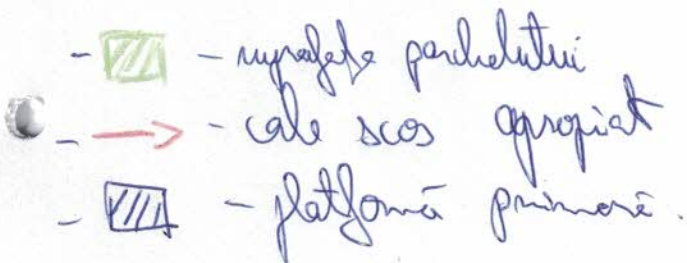 - - suprafața parchetului
- - cale scos apropiat
- - platformă primară.